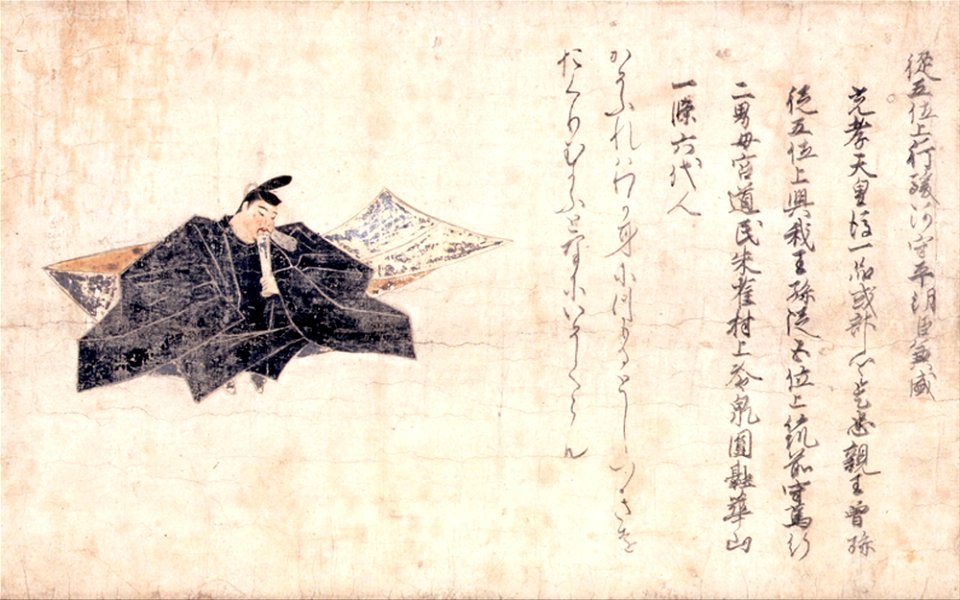 從五位上行駿河守平朝臣兼盛
光孝天皇後一品式部卿是忠親王曾孫
從五位上興我王孫從五位上筑前守篤行
二男母宮道氏朱雀村上冷泉圓融華山
一條六代人
かそふれはわか身につもるとしつきを
おくりむかふとなにいそくらん